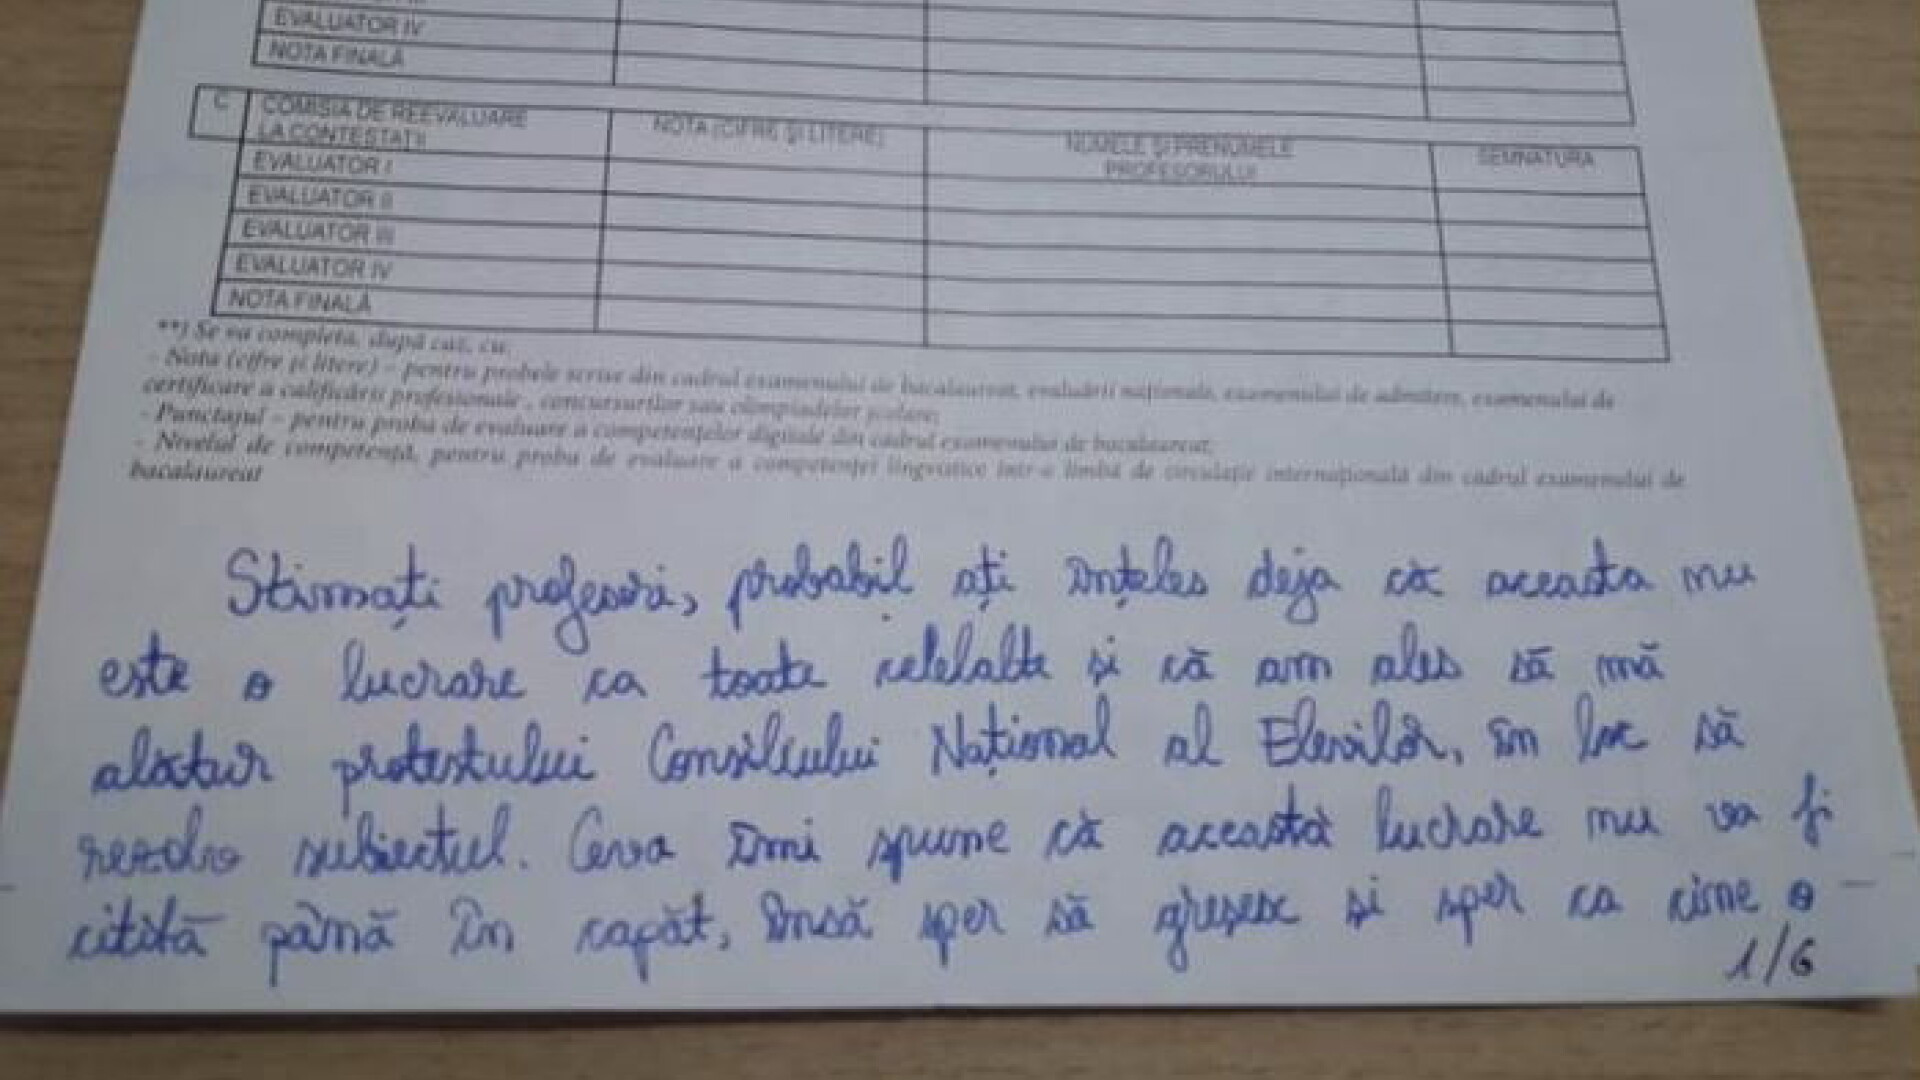 EVALUATOR IV
NOTA FINALĂ
C COMISIA DE REEVALUARE LA CONTESTAȚII NOTA (CIFRE ȘI LITERE) NUMELE ȘI PRENUMELE PROFESORULUI SEMNĂTURA
EVALUATOR I
EVALUATOR II
EVALUATOR III
EVALUATOR IV
NOTA FINALĂ
**) Se va completa, după caz, cu:
- Nota (cifre și litere) – pentru probele scrise din cadrul examenului de bacalaureat, evaluării naționale, examenului de admitere, examenului de
certificare a calificării profesionale, concursurilor sau olimpiadelor școlare;
- Punctajul – pentru proba de evaluare a competențelor digitale din cadrul examenului de bacalaureat;
- Nivelul de competență, pentru proba de evaluare a competenței lingvistice într-o limbă de circulație internațională din cadrul examenului de
bacalaureat
Stimați profesori, probabil ați înțeles deja că aceasta nu
este o lucrare ca toate celelalte și că am ales să mă
alătur protestului Consiliului Național al Elevilor, în loc să
rezolv subiectul. Ceva îmi spune că această lucrare nu va fi
citită până în capăt, însă sper să greșesc și sper ca cine o
1/6